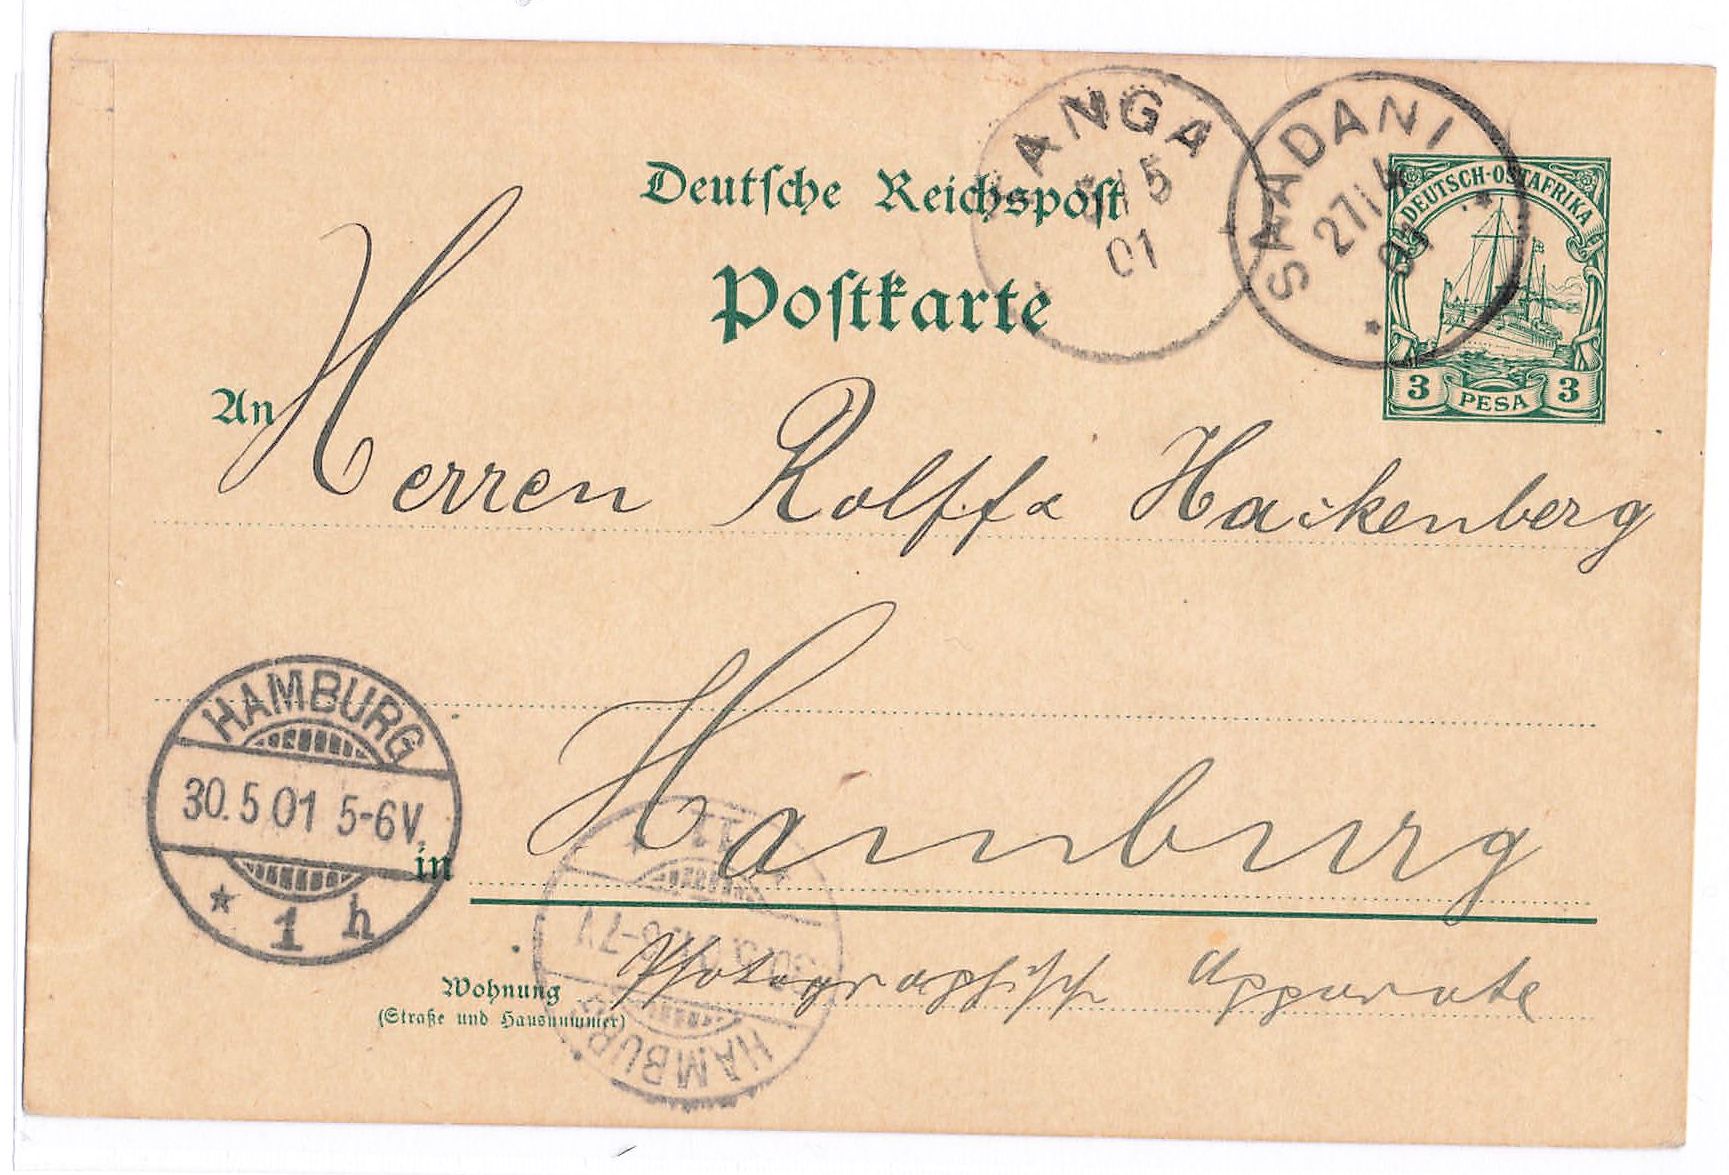 Deutsche Reichspost
Postkarte
ANGA
5
01
SAADANI
27/4
01
DEUTSCH-OSTAFRIKA
3 PESA 3
An Herren Rolffs Hackenberg
HAMBURG
30.5.01 5-6V.
* 1 h
in Hamburg
6-7V
HAMBURG
Wohnung
(Straße und Hausnummer)
Photographisch Apparate